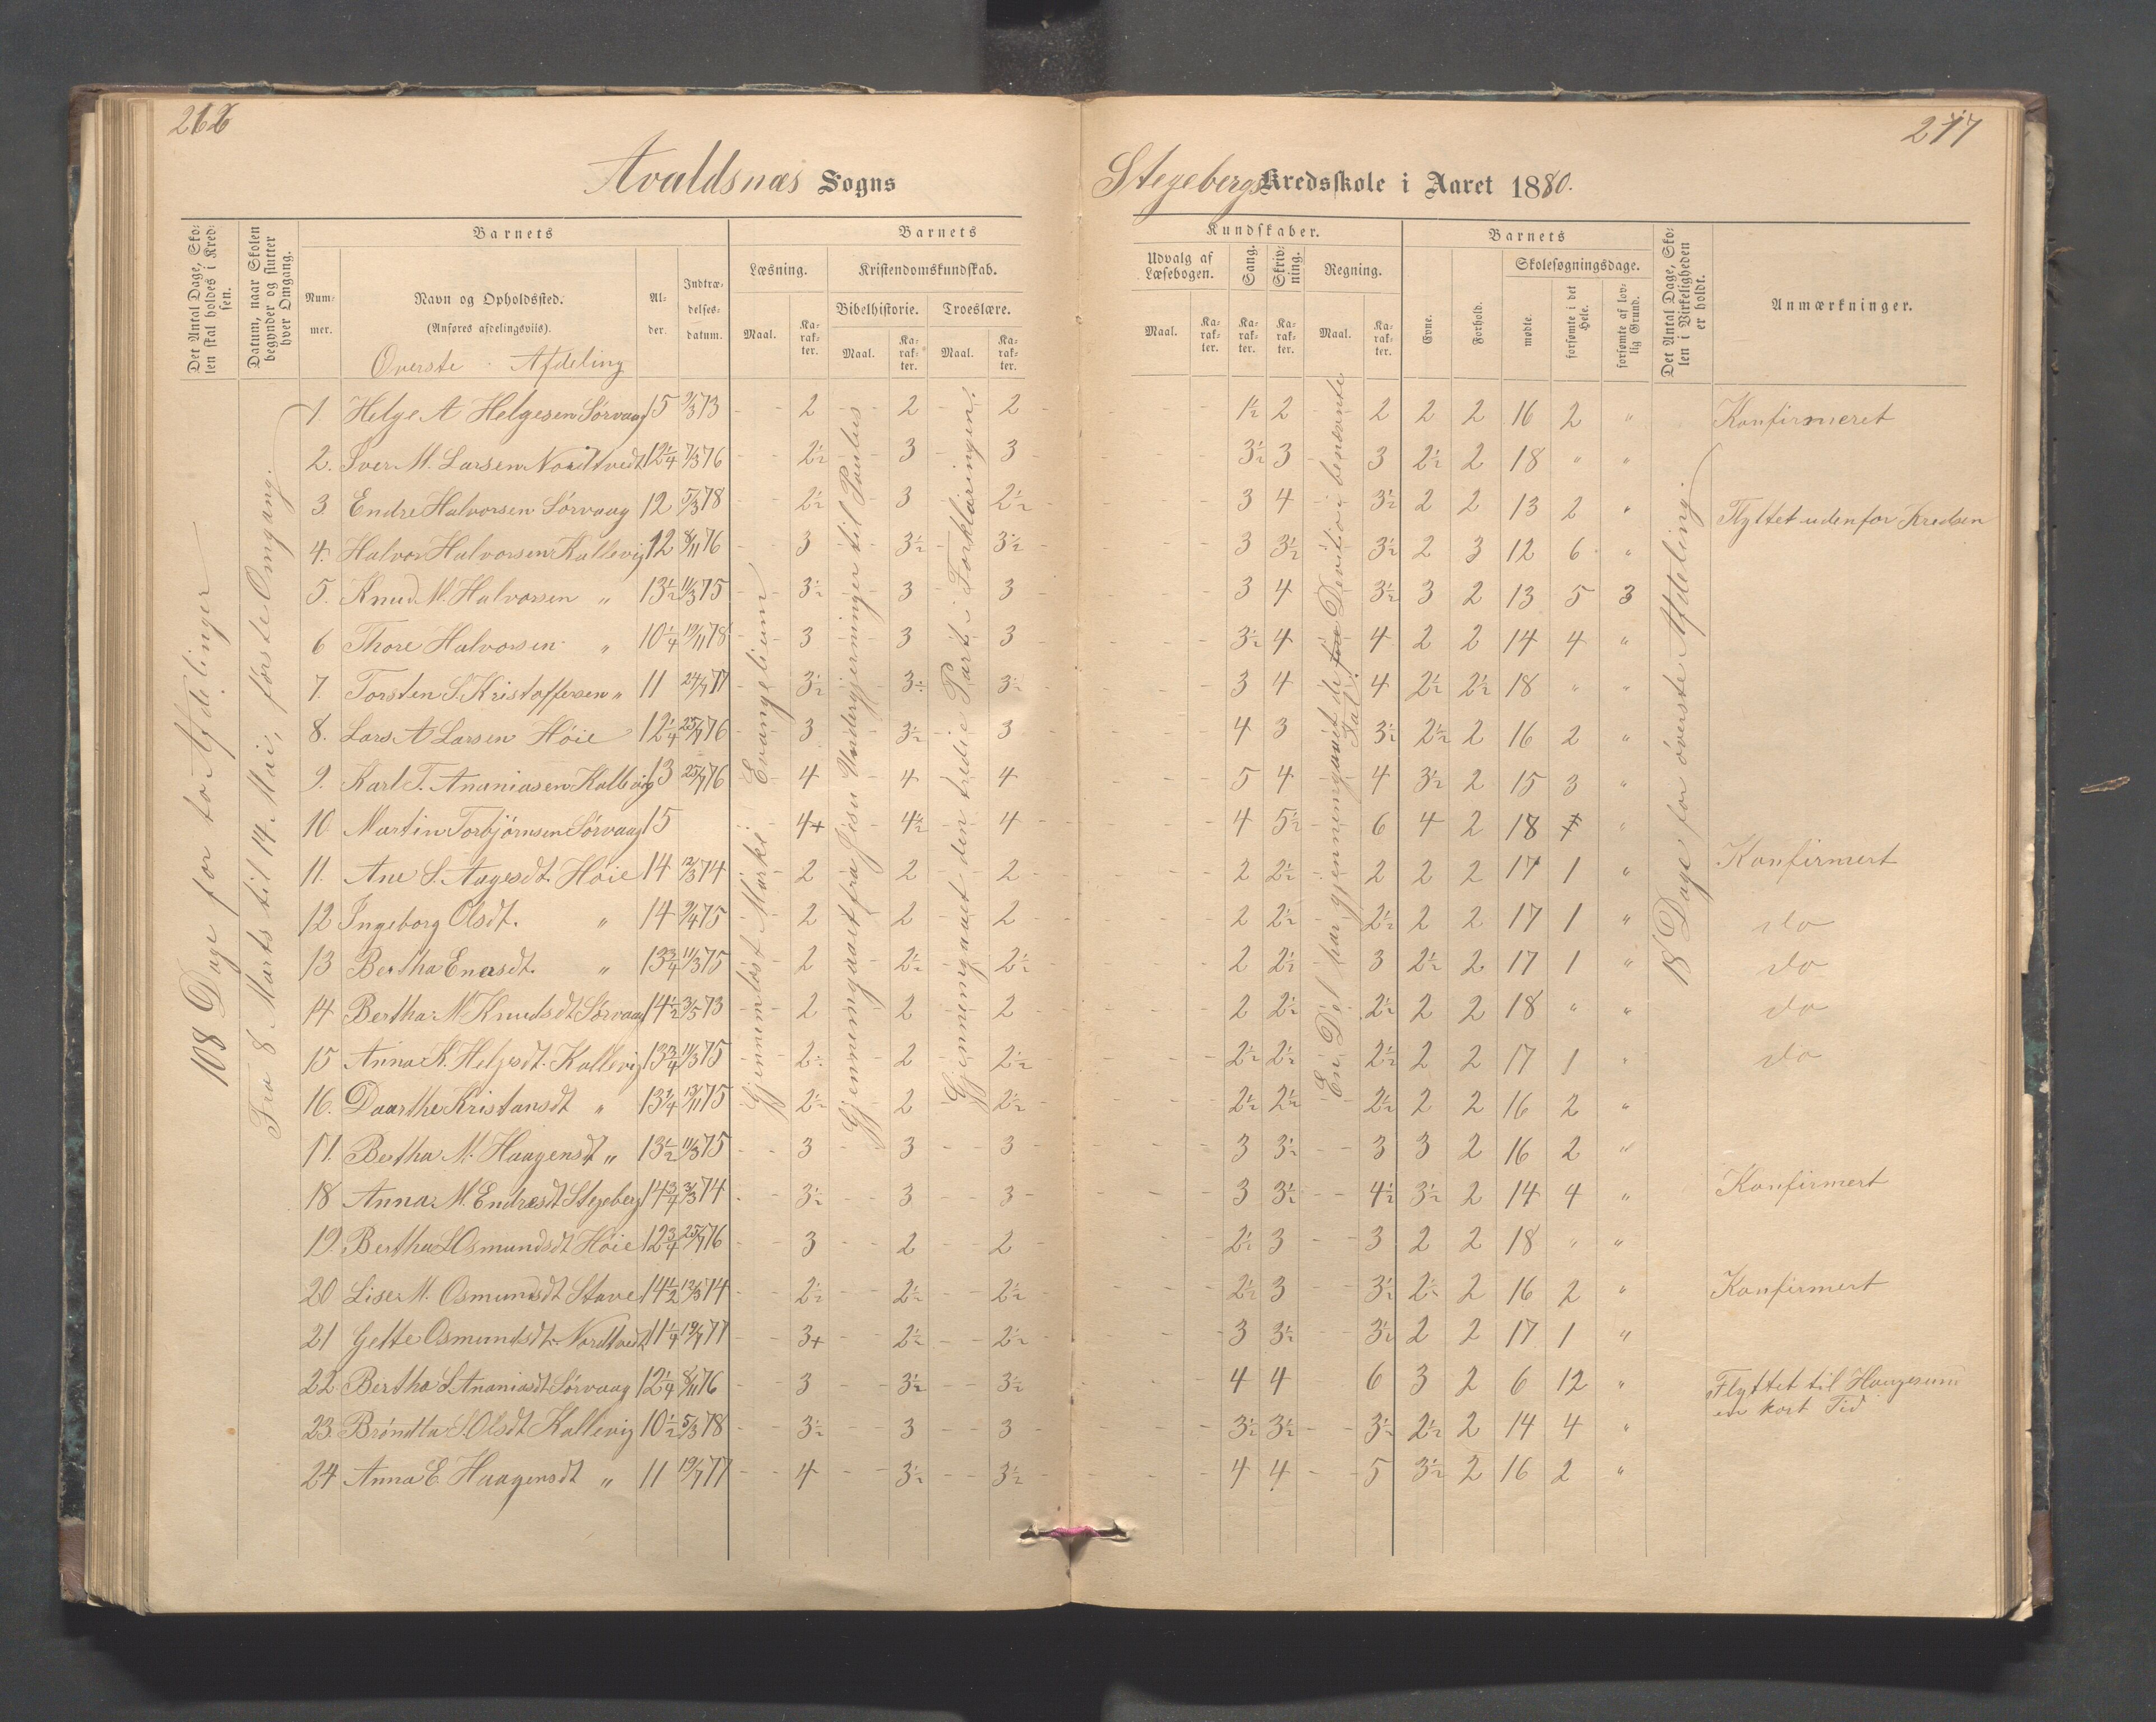 Avaldsnæs Sogns
Stegebergs Kredsskole i Aaret 1880.
Det Antal Dage, Sko-
len skal holdes i Kred-
sen.
Datum, naar Skolen
begynder og slutter
hver Omgang.
Barnets
Num-
mer.
Navn og Opholdssted.
(Anføres afdelingsvils).
Al-
der.
Indtræ-
delses-
datum.
Barnets
Læsning.
Kristendomskundskab.
Bibelhistorie. Troeslære.
Maal. Ka-
rak-
ter.
Maal. Ka-
rak-
ter.
Maal. Ka-
rak-
ter.
Kundskaber.
Udvalg af
Læsebogen.
Sang.
Skriv-
ning.
Regning.
Maal. Ka-
rak-
ter.
Ka-
rak-
ter.
Ka-
rak-
ter.
Maal. Ka-
rak-
ter.
Barnets
Evne.
Forhold.
Skolesøgningsdage.
mødte.
forsømte i det
Hele.
forsømte af lov-
lig Grund.
Det Antal Dage, Sko-
len i Virkeligheden
er holdt.
Anmærkninger.
Øverste Afdeling
108 Dage for to Afdelinger
Fra 8 Marts til 14. Mai, første Omgang.
Gjennemlæst Marki Evangelium
Gjennemgaaet fra Jesu Undergjerninger til Paulus
Gjennemgaaet den tredie Part i Forklaringen.
En Del har gjennemgaaet de fire Divitio i benævnte
Tal.
18 Dage for øverste Afdeling
1 Helge A Helgesen Sørvaag 15 2 2 2 1½ 2 2 2 2 16 2 " Konfirmeret
2. Iver M. Larsen Nordtvedt 12¼ 7/3 76 2½ 3 3 3½ 3 3 2½ 2 18 " "
3. Endre Halvorsen Sørvaag 12 5/3 78 2½ 3 2½ 3 4 3½ 2 2 13 2 " Flyttet udenfor Kredsen
4. Halvor Halvorsen Kallevig 12 8/11 76 3 3½ 3½ 3 3½ 3½ 2 3 12 6 "
5. Knud M. Halvorsen " 13½ 11/3 75 3½ 3 3 3 4 3½ 3 2 13 5 3
6 Thore Halvorsen " 10¼ 19/11 78 3 3 3 3½ 4 4 2 2 14 4 "
7. Torsten S. Kristoffersen " 11 24/7 77 3½ 3½ 3½ 3 4 4 2½ 2½ 18 " "
8. Lars A Larsen Høie 12¼ 25/7 76 3 3½ 3 4 3 3½ 2½ 2 16 2 "
9. Karl T. Ananiasen Kallevig 13 25/7 76 4 4 4 5 4 4 3½ 2 15 3 "
10 Martin Torbjørnsen Sørvaag 15 4+ 4½ 4 4 5½ 6 4 2 18 "
11. Ane S. Aagesdt. Høie 14 12/3 74 2 2 2 2 2½ 2 2 2 17 1 " Konfirmert
12 Ingeborg Olsdt. " 14 9/4 75 2 2 2 2 2½ 2½ 2 2 17 1 " do
13 Bertha Enersdt. " 13¾ 11/3 75 2 2½ 2½ 2 2½ 3 2½ 2 17 1 " do
14 Bertha M Knudsdt Sørvaag 14½ 3/5 73 2 2 2 2 2½ 2½ 2 2 18 " " do
15 Anna K. Helgesdt. Kallevig 13¾ 11/3 75 2½ 2 2½ 2½ 2½ 2½ 2 2 17 1 " do
16. Daarthe Kristansdt " 13¼ 13/11 75 2½ 2 2½ 2½ 2½ 2½ 2 2 16 2 "
17. Bertha M. Haagensdt " 13½ 11/3 75 3 3 3 3 3½ 3 3 2 16 2 "
18 Anna M. Endresdt Stegeberg 14¾ 3/3 74 3½ 3 3 3 3½ 4½ 3½ 2 14 4 " Konfirmert
19. Bertha L Osmundsdt Høie 12¾ 25/7 76 3 2 2 2½ 3 3 2 2 18 " "
20 Lise M. Osmundsdt Stave 14½ 12/3 74 2½ 2½ 2½ 2½ 3 3½ 2½ 2 16 2 " Konfirmert
21 Gette Osmundsdt. Nordtvedt 11¼ 19/7 77 3+ 2½ 2½ 3 3½ 3½ 2 2 17 1 "
22 Bertha L Ananiasdt Sørvaag 12¼ 8/11 76 3 3½ 3½ 4 4 6 3 2 6 12 " Flyttet til Haugesund
en kort Tid
23. Brøndta S. Olsdt Kallevig 10½ 5/3 78 3½ 3 3 3½ 3½ 3½ 2½ 2 14 4 "
24 Anna E Haagensdt " 11 19/7 77 4 3½ 3½ 4 4 5 3½ 2 16 2 "